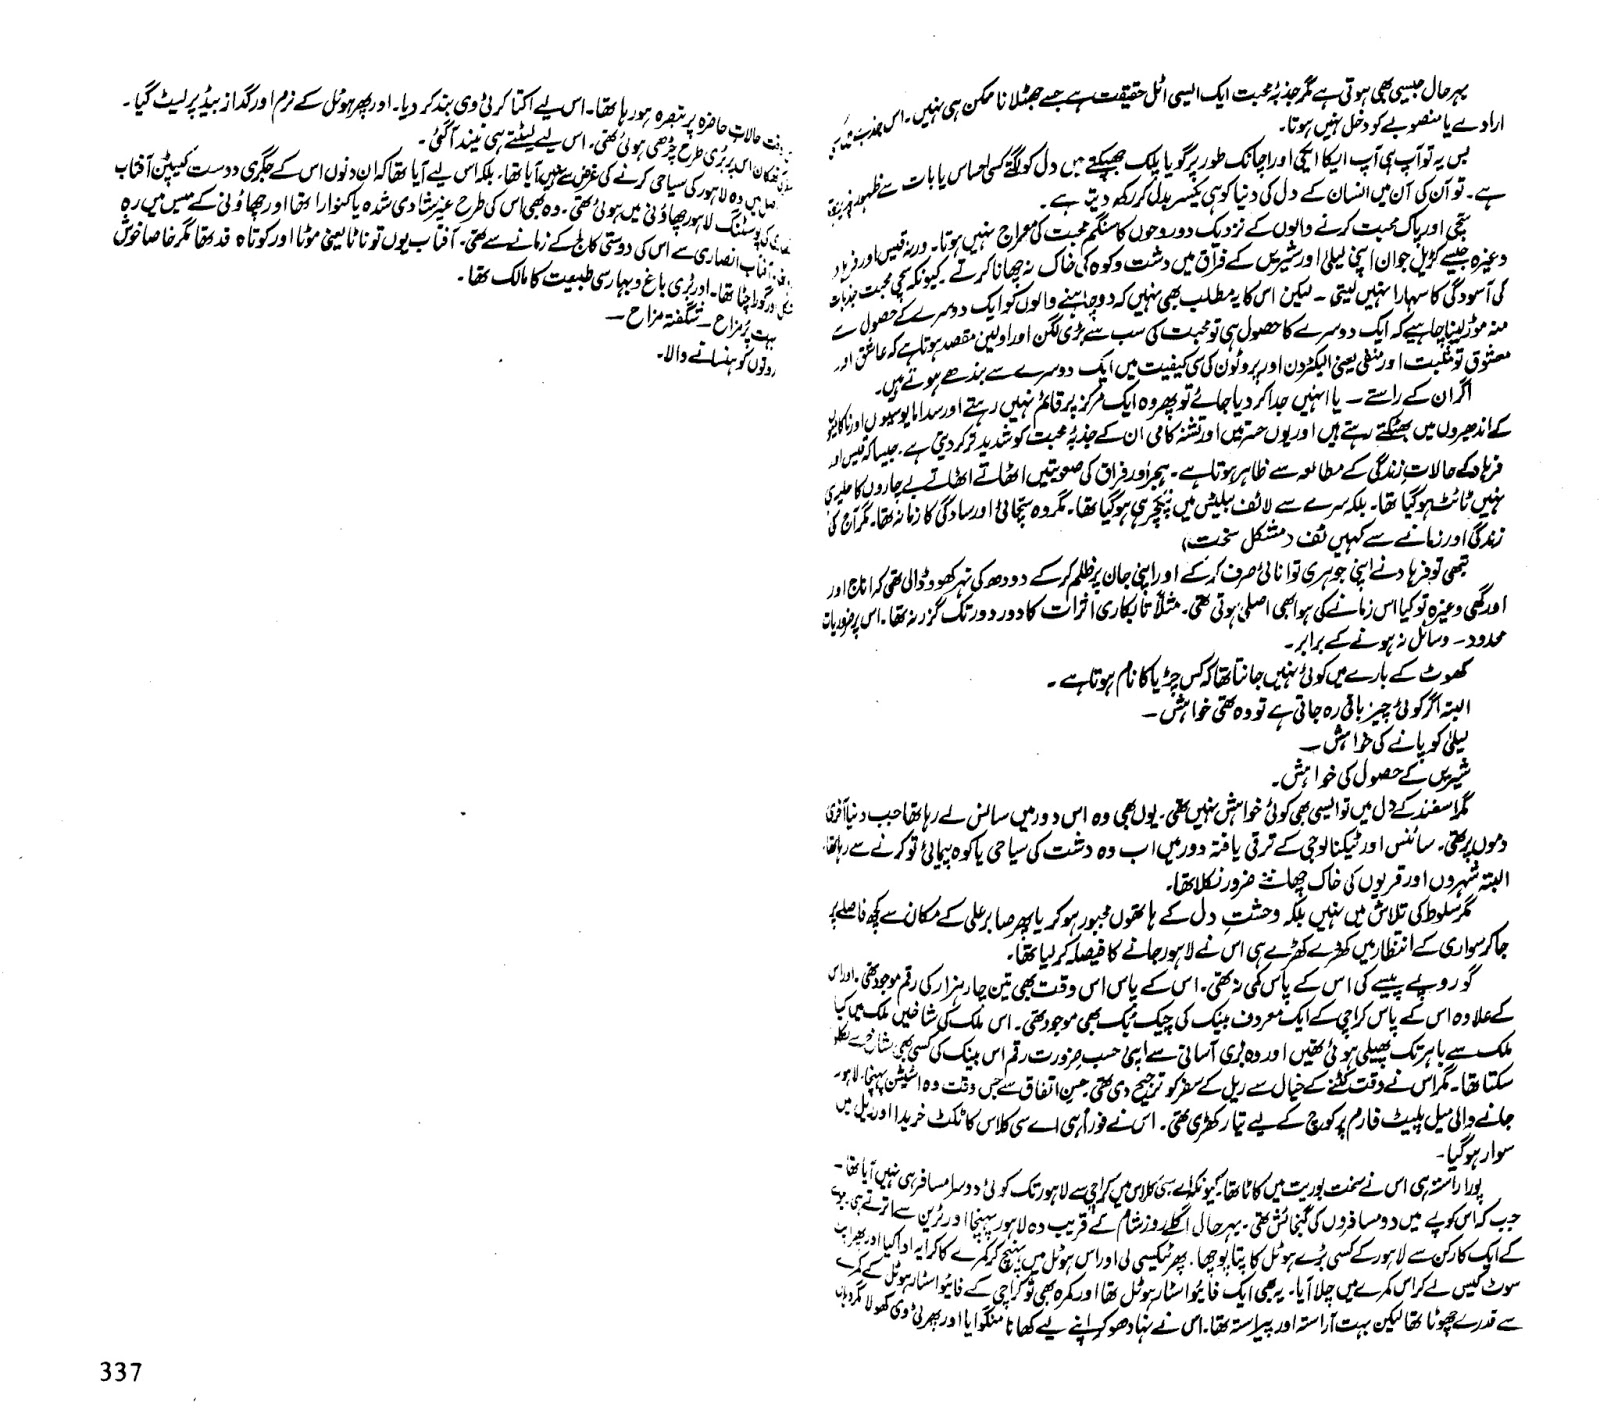 بہر حال جیسی بھی ہوتی ہے مگر جذبۂ محبت ایک ایسی اٹل حقیقت ہے جسے جھٹلانا ممکن ہی نہیں۔ اس جذبے میں کسی
ارادے یا منصوبے کو دخل نہیں ہوتا۔
بس یہ تو آپ ہی آپ ایکا ایکی اور اچانک طور پر گویا پلک جھپکتے میں دل کو لگتے کسی احساس یا بات سے ظہور پذیر ہوتا
ہے۔ تو آن کی آن میں انسان کے دل کی دنیا کو ہی یکسر بدل کر رکھ دیتا ہے۔
سچی اور پاک محبت کرنے والوں کے نزدیک دو روحوں کا سنگم محبت کی معراج نہیں ہوتا۔ ورنہ قیس اور فرہاد
وغیرہ جیسے کڑیل جوان اپنی لیلیٰ اور شیریں کے فراق میں دشت و کوہ کی خاک نہ چھانا کرتے۔ کیونکہ سچی محبت جذبات
کی آسودگی کا سہارا نہیں لیتی۔ لیکن اس کا یہ مطلب بھی نہیں کہ دو چاہنے والوں کو ایک دوسرے کے حصول سے
منہ موڑ لینا چاہیے کہ ایک دوسرے کا حصول ہی تو محبت کی سب سے بڑی لگن اور اولین مقصد ہوتا ہے کہ عاشق اور
معشوق تو مثبت اور منفی یعنی الیکٹرون اور پروٹون کی سی کیفیت میں ایک دوسرے سے بندھے ہوتے ہیں۔
اگر ان کے راستے – یا انہیں جدا کر دیا جائے تو پھر وہ ایک مرکز پر قائم نہیں رہتے اور سدا مایوسیوں اور ناکامیوں
کے اندھیروں میں بھٹکتے رہتے ہیں اور یوں حسرتیں اور تشنہ کامی ان کے جذبۂ محبت کو شدید تر کر دیتی ہے۔ جیسا کہ قیس اور
فرہاد کے حالاتِ زندگی کے مطالعہ سے ظاہر ہوتا ہے۔ ہجر اور فراق کی صعوبتیں اٹھاتے اٹھاتے بے چاروں کا حلیہ ہی
نہیں ٹائٹ ہوگیا تھا۔ بلکہ سرے سے لائف بیلٹس میں پنکچر ہی ہوگیا تھا۔ مگر وہ سچائی اور سادگی کا زمانہ تھا۔ مگر آج کی
زندگی اور زمانے سے کہیں ٹف (مشکل سخت)
تبھی تو فرہاد نے اپنی جوہری توانائی صرف کر کے اور اپنی جان پر ظلم کر کے دودھ کی نہر کھود ڈالی تھی کہ اناج اور
اور گھی وغیرہ تو کیا اس زمانے کی ہوا بھی اصلی ہوتی تھی۔ مثلاً تابکاری اثرات کا دور دور تک گزر نہ تھا۔ اس پر ضروریات
محدود – وسائل نہ ہونے کے برابر۔
کھوٹ کے بارے میں کوئی نہیں جانتا تھا کہ کس چڑیا کا نام ہوتا ہے۔
البتہ اگر کوئی چیز باقی رہ جاتی ہے تو وہ تھی خواہش –
لیلیٰ کو پانے کی خواہش –
شیریں کے حصول کی خواہش۔
مگر اسفند کے دل میں تو ایسی بھی کوئی خواہش نہیں تھی۔ یوں بھی وہ اس دور میں سانس لے رہا تھا جب دنیا آخری
دموں پر تھی۔ سائنس اور ٹیکنالوجی کے ترقی یافتہ دور میں اب وہ دشت کی سیاحی یا کوہ پیمائی تو کرنے سے رہا تھا۔
البتہ شہروں اور قریوں کی خاک چھاننے ضرور نکلا تھا۔
مگر سلوط کی تلاش میں نہیں بلکہ وحشتِ دل کے ہاتھوں مجبور ہو کر یا پھر صابر علی کے مکان سے کچھ فاصلے پر
جا کر سواری کے انتظار میں کھڑے کھڑے ہی اس نے لاہور جانے کا فیصلہ کر لیا تھا۔
گو روپے پیسے کی اس کے پاس کمی نہ تھی۔ اس کے پاس اس وقت بھی تین چار ہزار کی رقم موجود تھی۔ اور اس
کے علاوہ اس کے پاس کراچی کے ایک معروف بینک کی چیک بک بھی موجود تھی۔ اس ملک کی شاخیں ملک میں کیا
ملک سے باہر تک پھیلی ہوئی تھیں اور وہ بڑی آسانی سے اپنی حسبِ ضرورت رقم اس بینک کی کسی بھی شاخ سے نکلوا
سکتا تھا۔ مگر اس نے وقت کٹنے کے خیال سے ریل کے سفر کو ترجیح دی تھی۔ حسنِ اتفاق سے جس وقت وہ اسٹیشن پہنچا۔ لاہور
جانے والی میل پلیٹ فارم پر کوچ کے لیے تیار کھڑی تھی۔ اس نے فوراً ہی اے سی کلاس کا ٹکٹ خریدا اور ریل میں
سوار ہوگیا۔
پورا راستہ ہی اس نے سخت بوریت میں کاٹا تھا۔ کیونکہ اے سی کلاس میں کراچی سے لاہور تک کوئی دوسرا مسافر ہی نہیں آیا تھا۔
جب کہ اس کوپے میں دو مسافروں کی گنجائش تھی۔ بہر حال اگلے روز شام کے قریب وہ لاہور پہنچا اور ٹرین سے اترتے ہی
کے ایک کارکن سے لاہور کے کسی بڑے ہوٹل کا پتا پوچھا۔ پھر ٹیکسی لی اور اس ہوٹل میں پہنچ کر کمرے کا کرایہ ادا کیا اور پھر
سوٹ کیس لے کر اس کمرے میں چلا آیا۔ یہ بھی ایک فائیو اسٹار ہوٹل تھا اور کمرہ بھی گو کراچی کے فائیو اسٹار ہوٹل کے کمرے
سے قدرے چھوٹا تھا لیکن بہت آراستہ اور پیراستہ تھا۔ اس نے نہا دھو کر اپنے لیے کھانا منگوایا اور پھر ٹی وی کھولا مگر وہاں
وقت حالاتِ حاضرہ پر تبصرہ ہو رہا تھا۔ اس لیے اکتا کر ٹی وی بند کر دیا۔ اور پھر ہوٹل کے نرم اور گداز بیڈ پر لیٹ گیا۔
تھکان اس پر بُری طرح چڑھی ہوئی تھی۔ اس لیے لیٹتے ہی نیند آگئی۔
میں وہ لاہور کی سیاحی کرنے کی غرض سے نہیں آیا تھا۔ بلکہ اس لیے آیا تھا کہ ان دنوں اس کے جگری دوست کیپٹن آفتاب
کی پوسٹنگ لاہور چھاؤنی میں ہوئی تھی۔ وہ بھی اس کی طرح غیر شادی شدہ یا کنوارا تھا اور چھاؤنی کے میس میں رہ
آفتاب انصاری سے اس کی دوستی کالج کے زمانے سے تھی۔ آفتاب یوں تو ناٹا یعنی موٹا اور کوتاہ قد تھا مگر خاصا خوش
شکل اور گورا چٹا تھا۔ اور بڑی باغ و بہار سی طبیعت کا مالک تھا۔
بہت پُر مزاح – شگفتہ مزاج –
روتوں کو ہنسانے والا۔
337